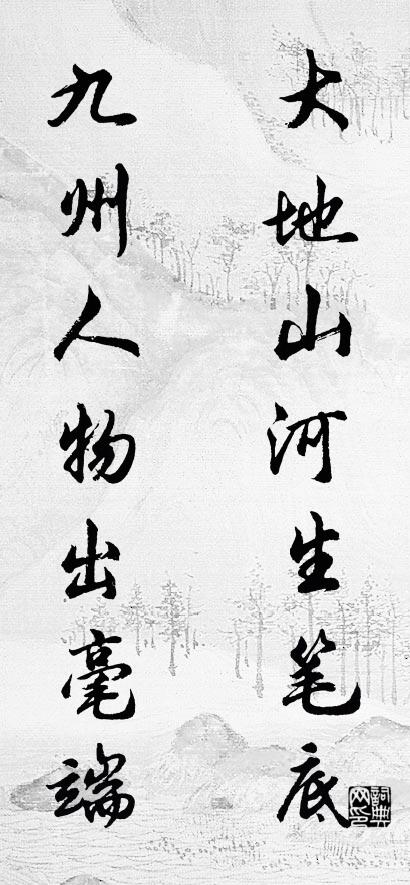 大地山河生笔底
九州人物出毫端
词典网印